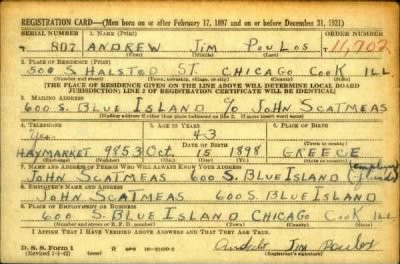 REGISTRATION CARD—(Men born on or after February 17, 1897 and on or before December 31, 1921)
SERIAL NUMBER 1. NAME (Print) ORDER NUMBER
807 ANDREW JIM POULOS 11,702
(First) (Middle) (Last)
2. PLACE OF RESIDENCE (Print)
500 S HALSTOD ST. CHICAGO COOK ILL
(Number and street) (Town, township, village, or city) (County) (State)
[THE PLACE OF RESIDENCE GIVEN ON THE LINE ABOVE WILL DETERMINE LOCAL BOARD
JURISDICTION; LINE 2 OF REGISTRATION CERTIFICATE WILL BE IDENTICAL]
3. MAILING ADDRESS
600 S. BLUE ISLAND % JOHN SCATMEAS
[Mailing address if other than place indicated on line 2. If same insert word same]
4. TELEPHONE 5. AGE IN YEARS 6. PLACE OF BIRTH
Yes. 43
DATE OF BIRTH (Town or county)
HAYMARKET 9853 Oct. 15 1898 GREECE
(Exchange) (Number) (Mo.) (Day) (Yr.) (State or country)
7. NAME AND ADDRESS OF PERSON WHO WILL ALWAYS KNOW YOUR ADDRESS
JOHN SCATMEAS 600 S. BLUE ISLAND
8. EMPLOYER'S NAME AND ADDRESS
JOHN SCATMEAS 600 S. BLUE ISLAND
9. PLACE OF EMPLOYMENT OR BUSINESS
600 S. BLUE ISLAND CHICAGO COOK ILL
(Number and street or R. F. D. number) (Town) (County) (State)
I AFFIRM THAT I HAVE VERIFIED ABOVE ANSWERS AND THAT THEY ARE TRUE.
D. S. S. Form 1 Jim Poulos
(Revised 1-1-42) (Registrant's signature)